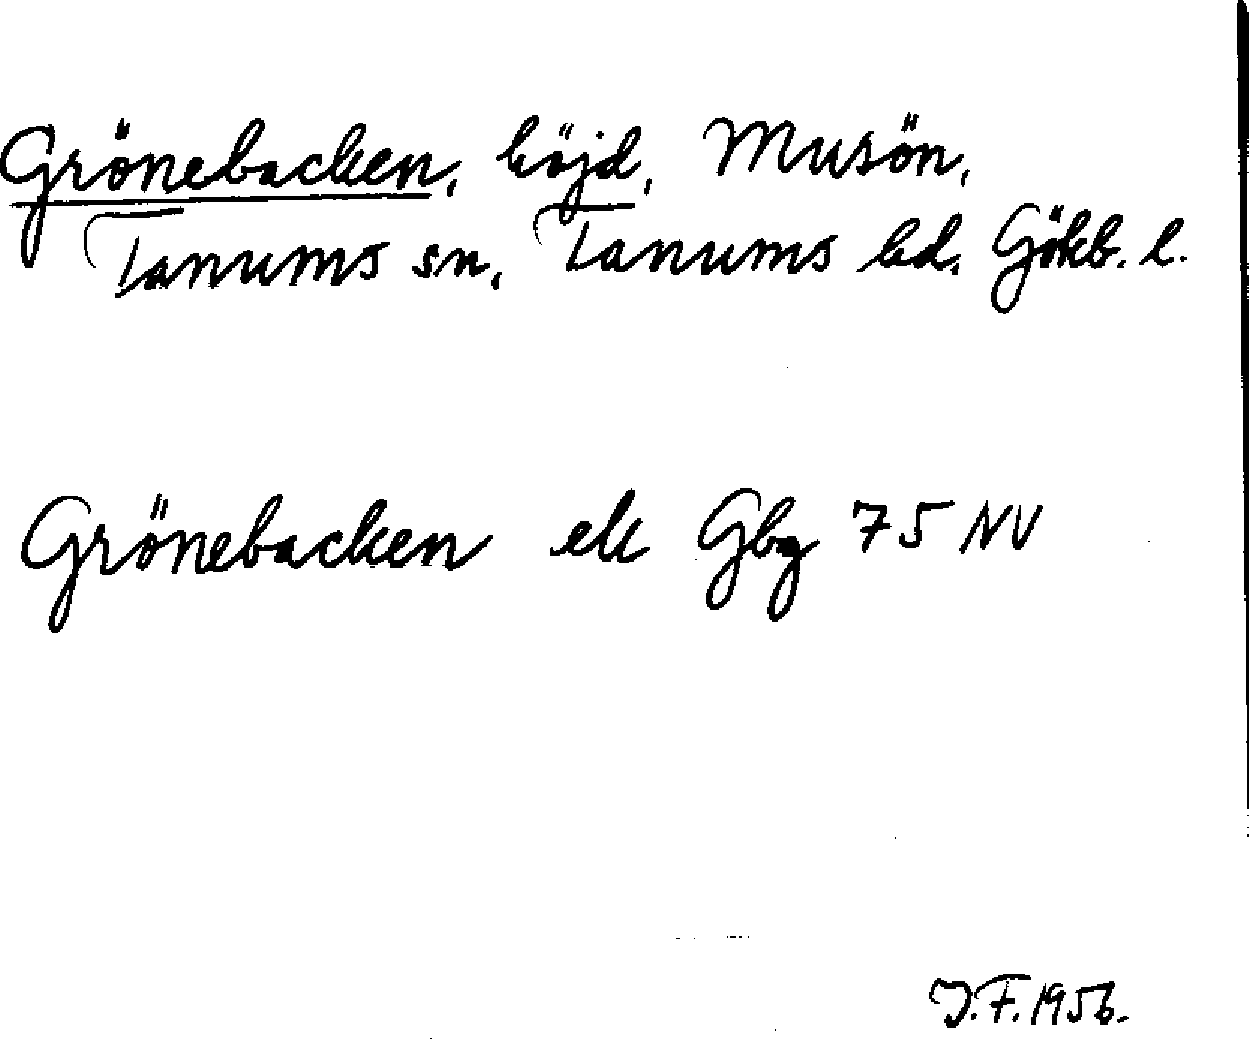 Grönebacken, höjd, Musön,
Tanums sn, Tanums hd. Gökb. l.
Grönebacken ek Gbg 75 NV
J.F. 1956.